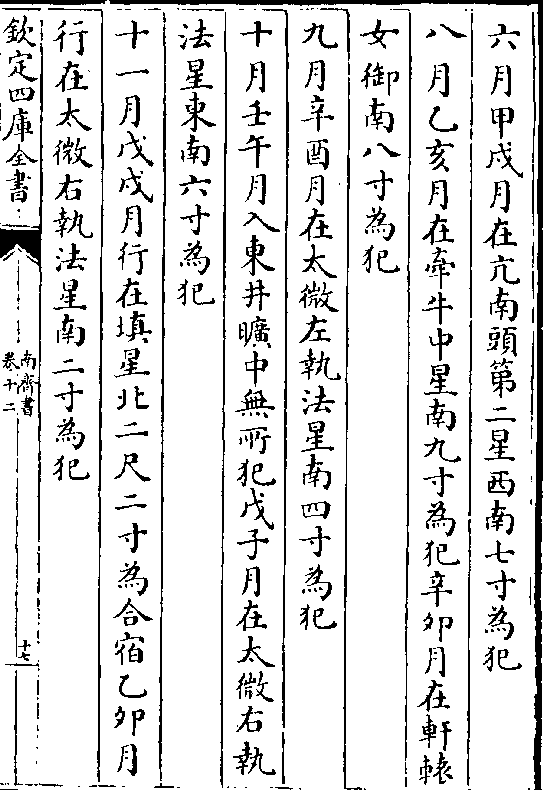 六月甲戌月在亢南頭第二星西南七寸為犯
八月乙亥月在牽牛中星南九寸為犯辛卯月在軒轅
女御南八寸為犯
九月辛酉月在太微左執法星南四寸為犯
十月壬午月入東井曠中無所犯戊子月在太微右執
法星東南六寸為犯
十一月戊戌月行在填星北二尺二寸為合宿乙卯月
行在太微右執法星南二寸為犯
欽定四庫全書
南齊書
卷十二
十七